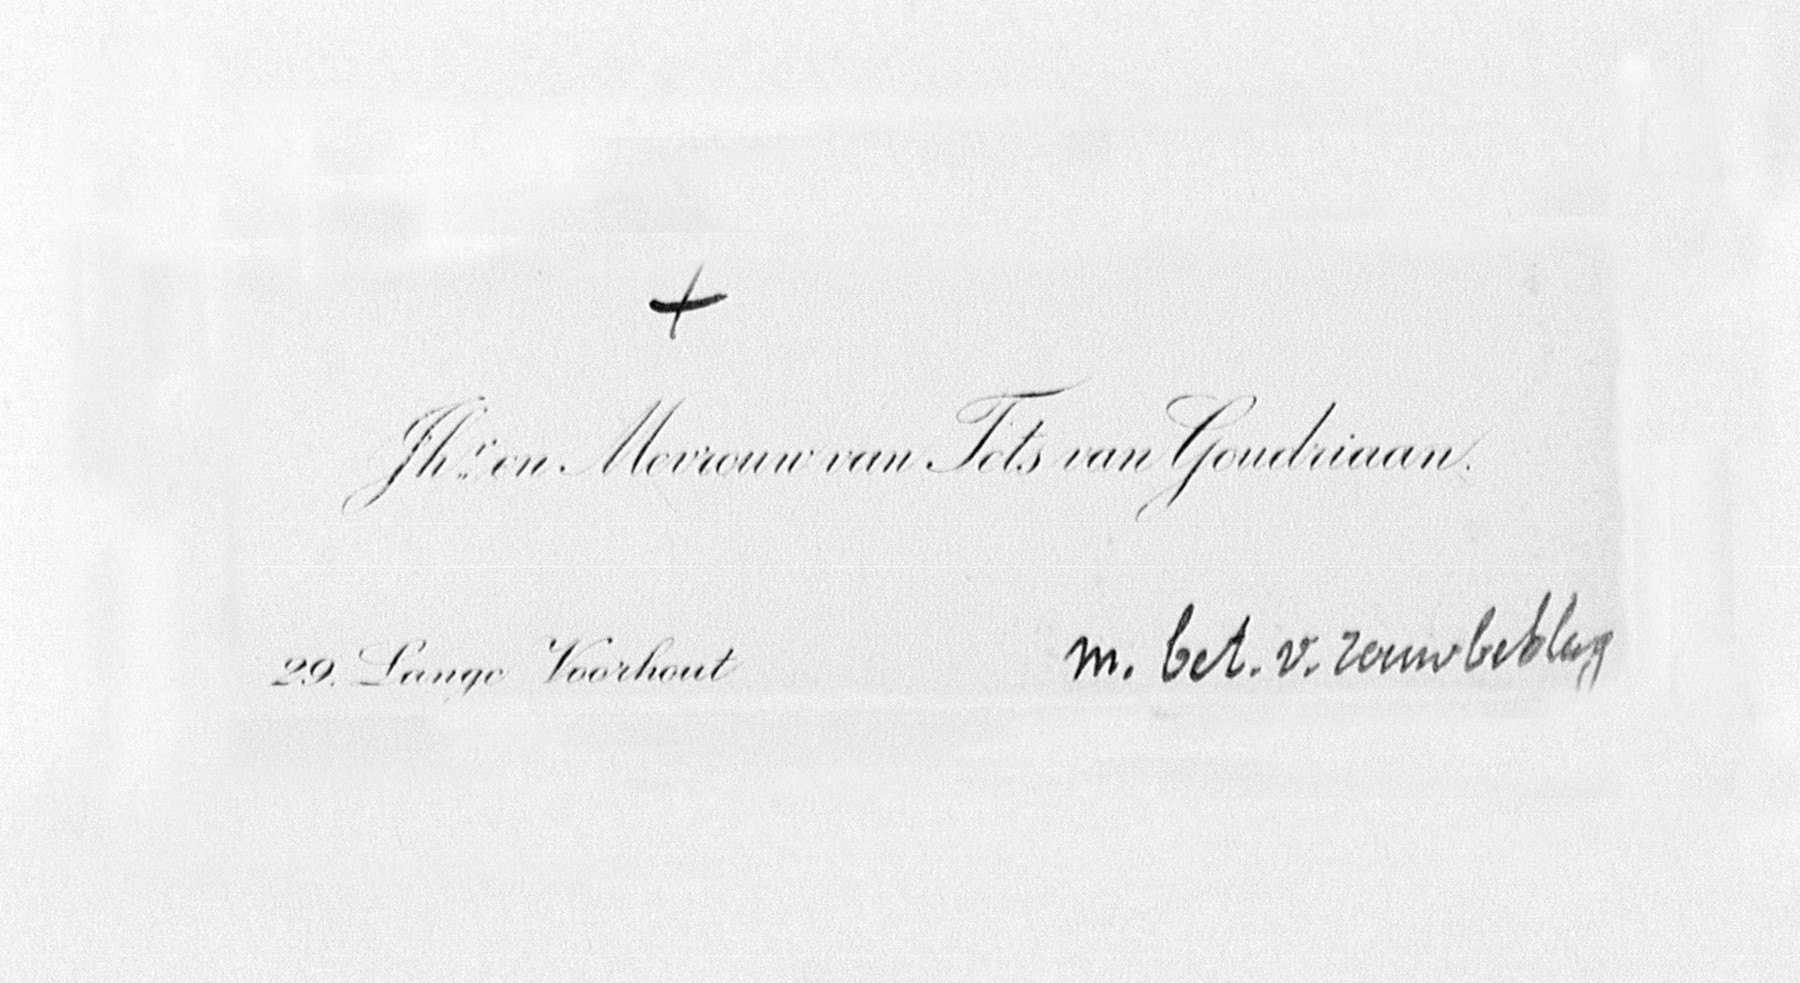 Jhr. en Mevrouw van Tets van Goudriaan.
29. Lange Voorhout
m. bet. v. rouwbeklag